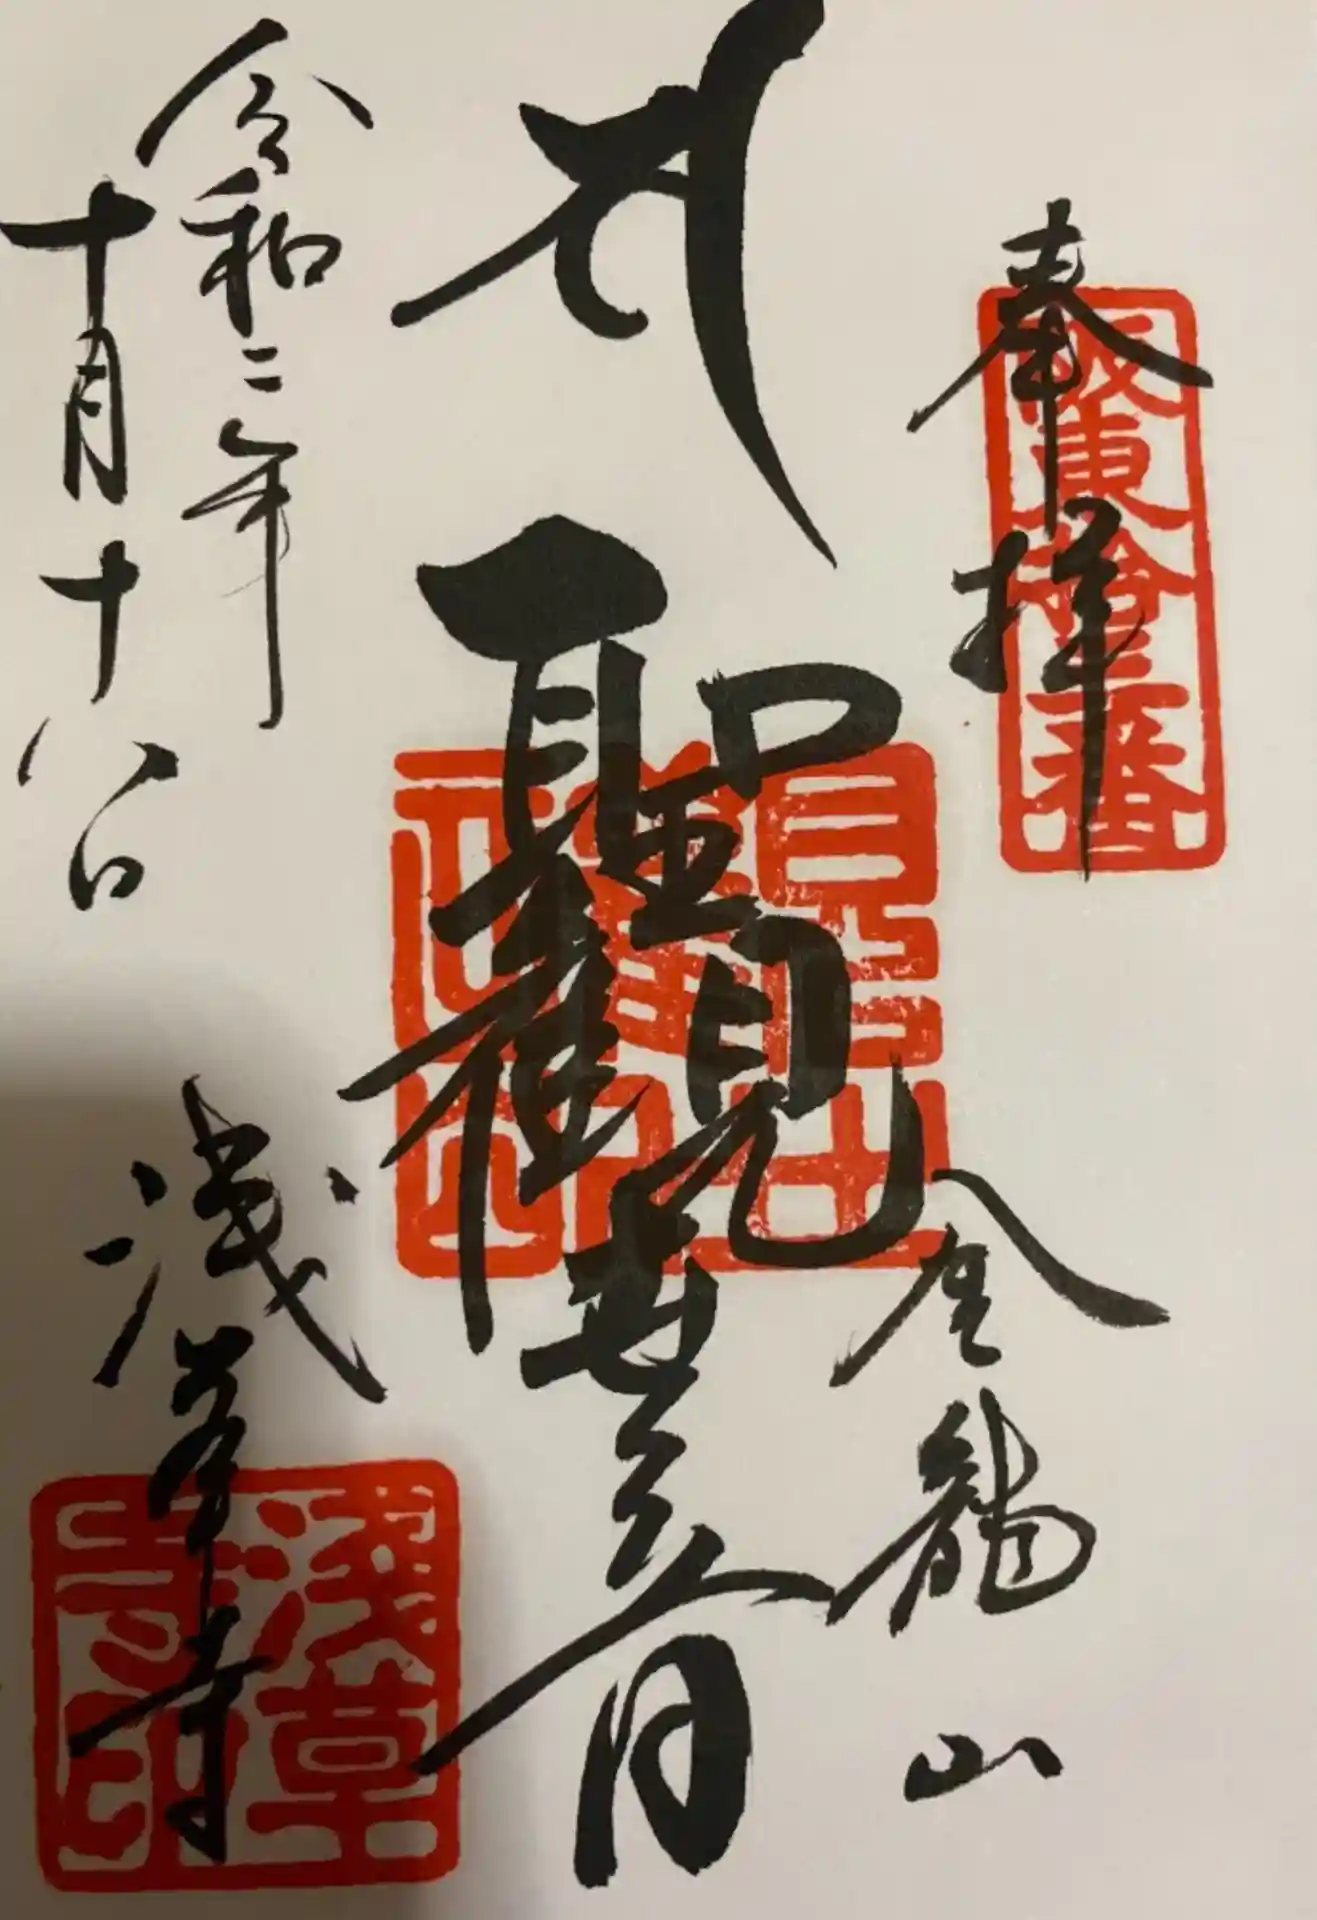 奉拝
坂東拾三番
金龍山
聖観世音
令和二年
十月十八日
浅草寺
浅草寺印